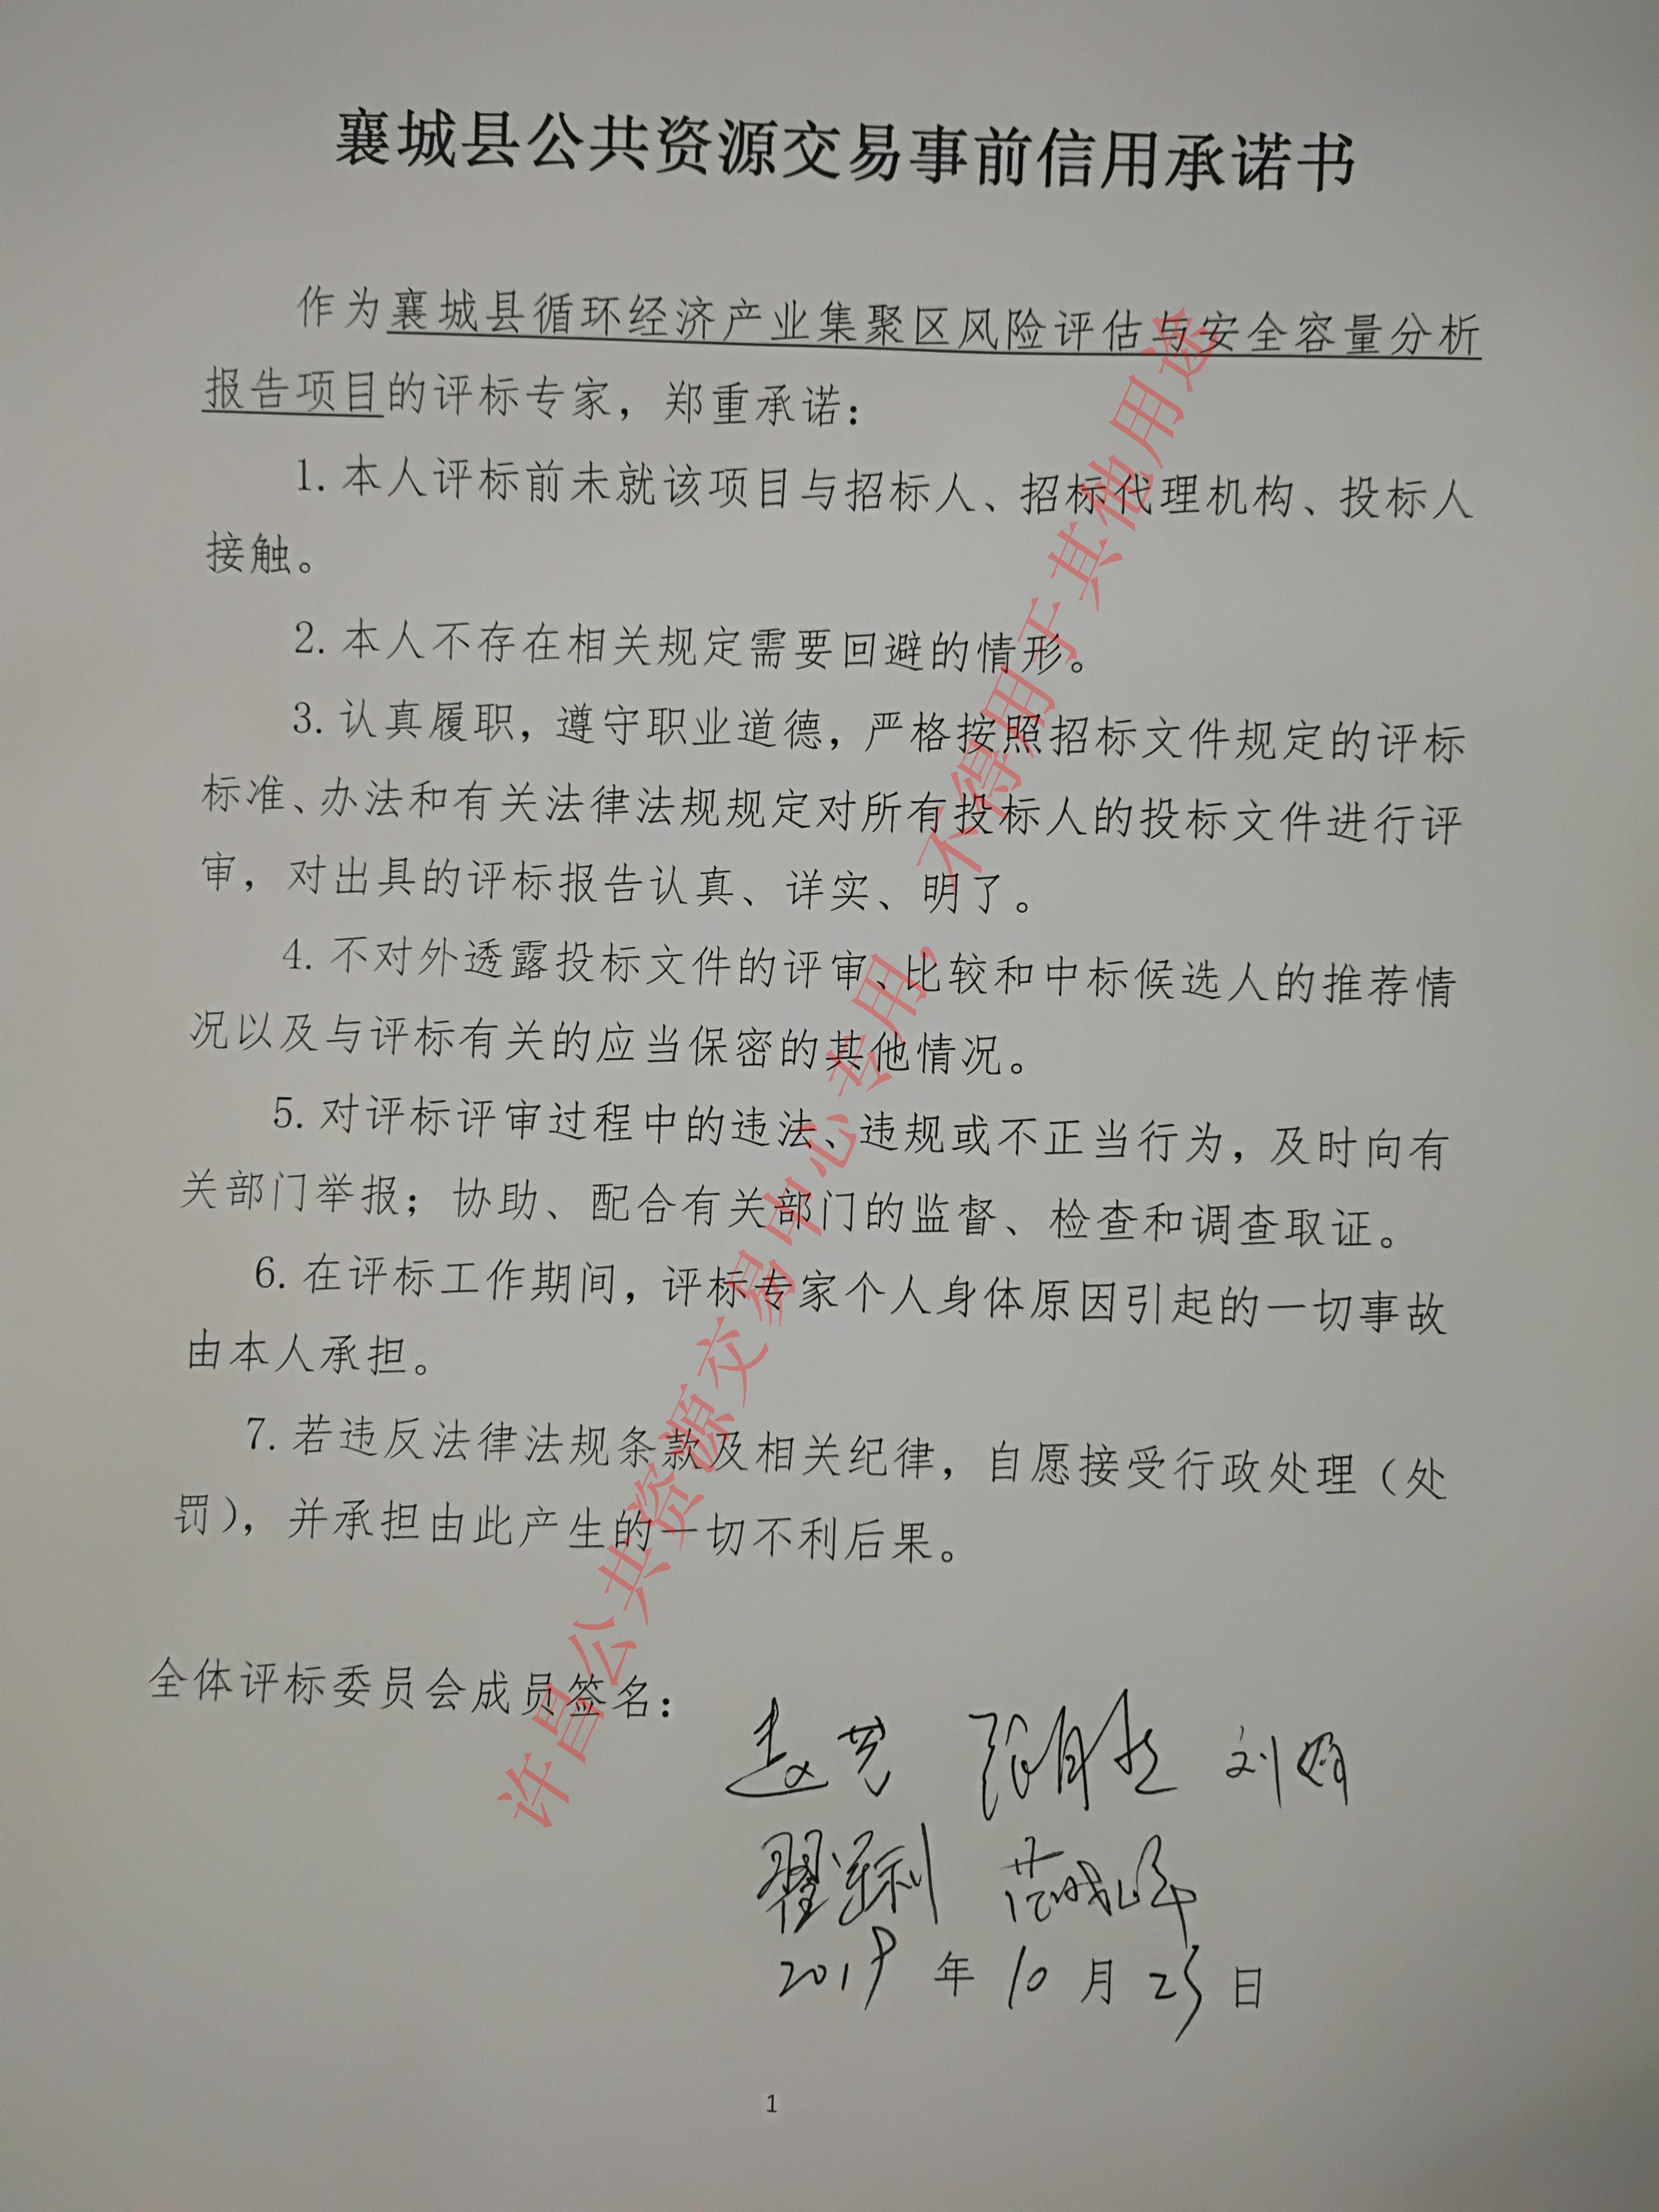 襄城县公共资源交易事前信用承诺书
作为襄城县循环经济产业集聚区风险评估与安全容量分析
报告项目的评标专家，郑重承诺：
1.本人评标前未就该项目与招标人、招标代理机构、投标人
接触。
2.本人不存在相关规定需要回避的情形。
3.认真履职，遵守职业道德，严格按照招标文件规定的评标
标准、办法和有关法律法规规定对所有投标人的投标文件进行评
审，对出具的评标报告认真、详实、明了。
4.不对外透露投标文件的评审、比较和中标候选人的推荐情
况以及与评标有关的应当保密的其他情况。
5.对评标评审过程中的违法、违规或不正当行为，及时向有
关部门举报；协助、配合有关部门的监督、检查和调查取证。
6.在评标工作期间，评标专家个人身体原因引起的一切事故
由本人承担。
7.若违反法律法规条款及相关纪律，自愿接受行政处理（处
罚），并承担由此产生的一切不利后果。
全体评标委员会成员签名：
刘娟
2019年10月23日
1
许昌公共资源交易中心专用，不得用于其他用途